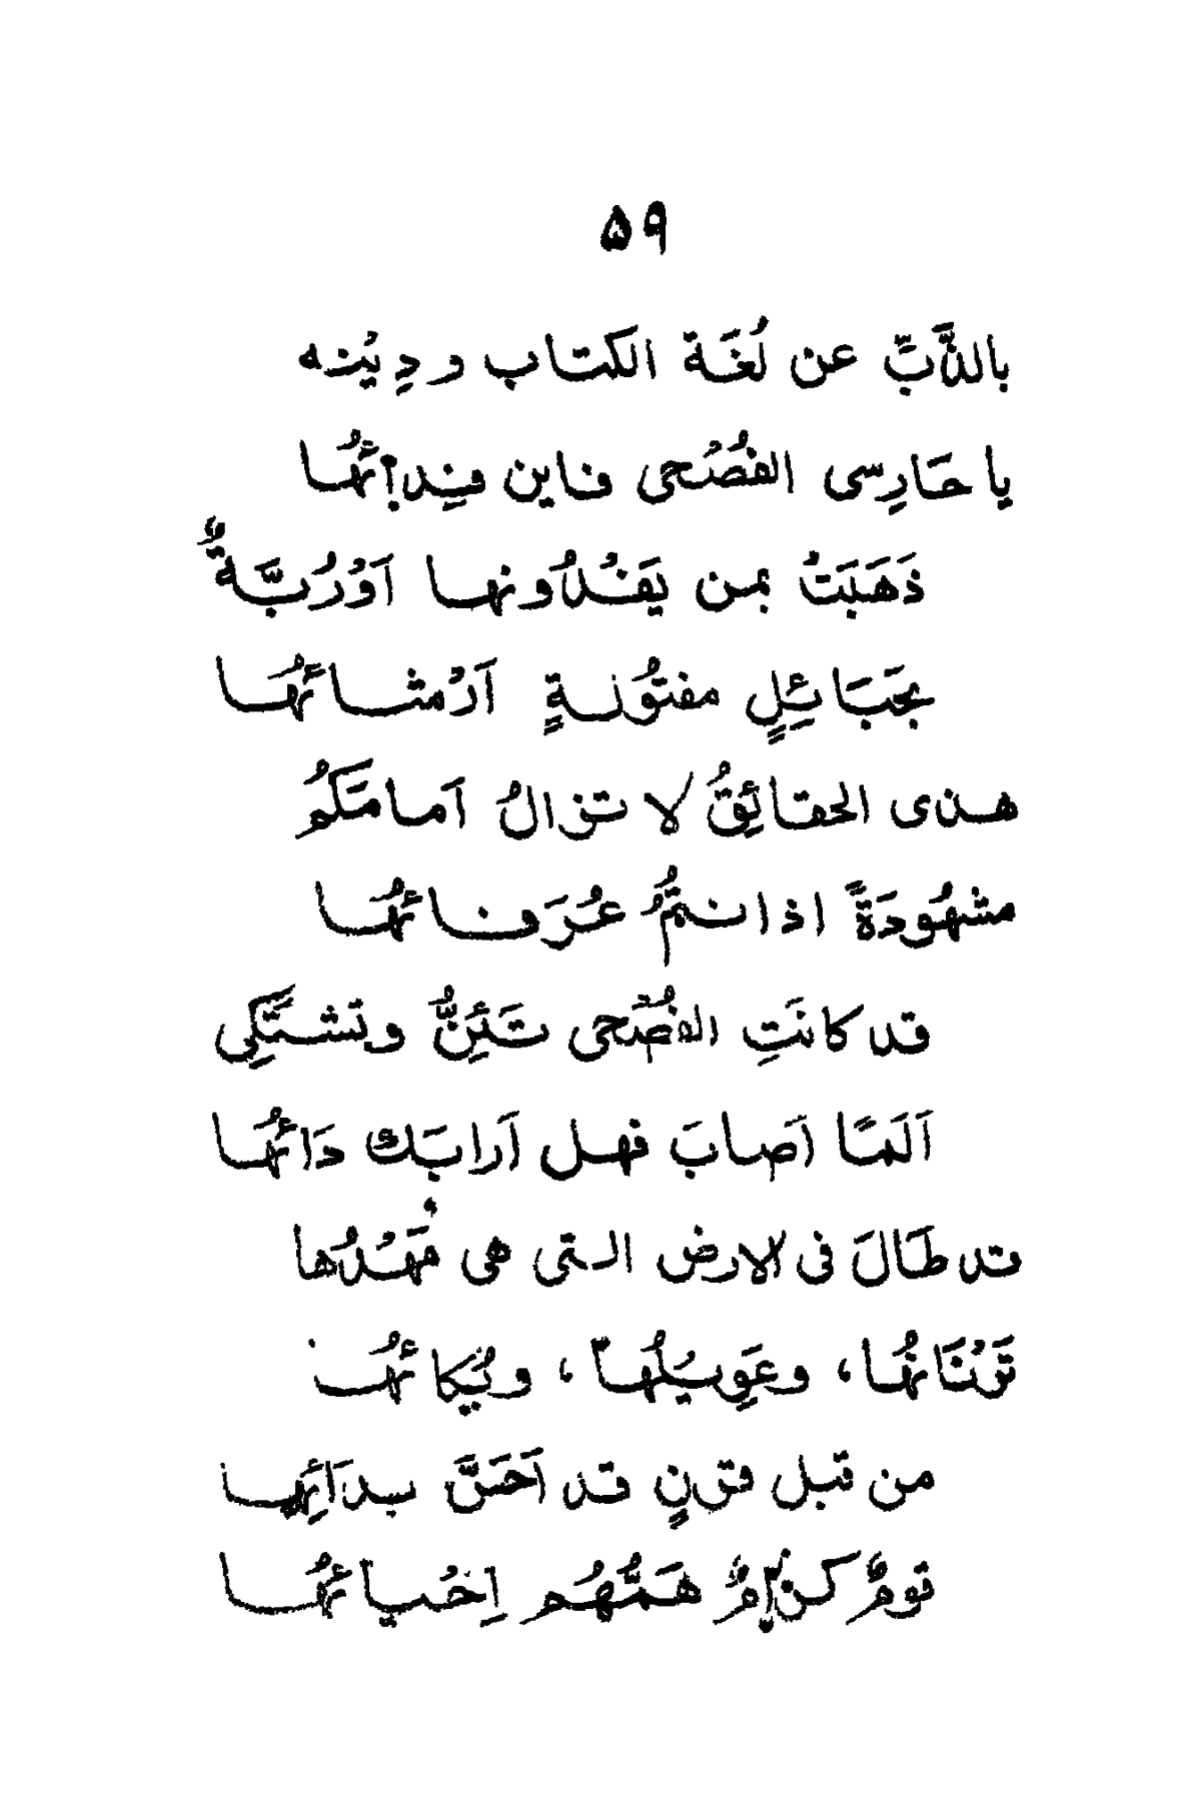 ۵۹
بالذَّبِّ عن لُغَة الكتاب و دِيْنه
يا حَارِسى الفُصْحى فاين فِدائُها
ذَهَبَتْ بمن يَفْدُونها اَوْرُبَّةٌ
بحَبَائِلٍ مفتُونةٍ اَرْمثائهَُا
هذى الحقائِقُ لا تزالُ اَمامَكُم
مشهُودَةً اذا نتمُ عُرَفائهَُا
قد كانَتِ الفُصْحى تَئِنُّ وتشتَكِى
اَلَمًا اَصابَ فهل اَرابَك دَائهَُا
قد طَالَ فى الارض التى هى مَهْدُها
تَرْنَانُها، وعَوِيْلُها، وبُكائهَُا
من قبل قرنٍ قد اَحَسَّ بدَائِها
قومٌ كرامٌ هَمُّهُم اِحْيائهَُا